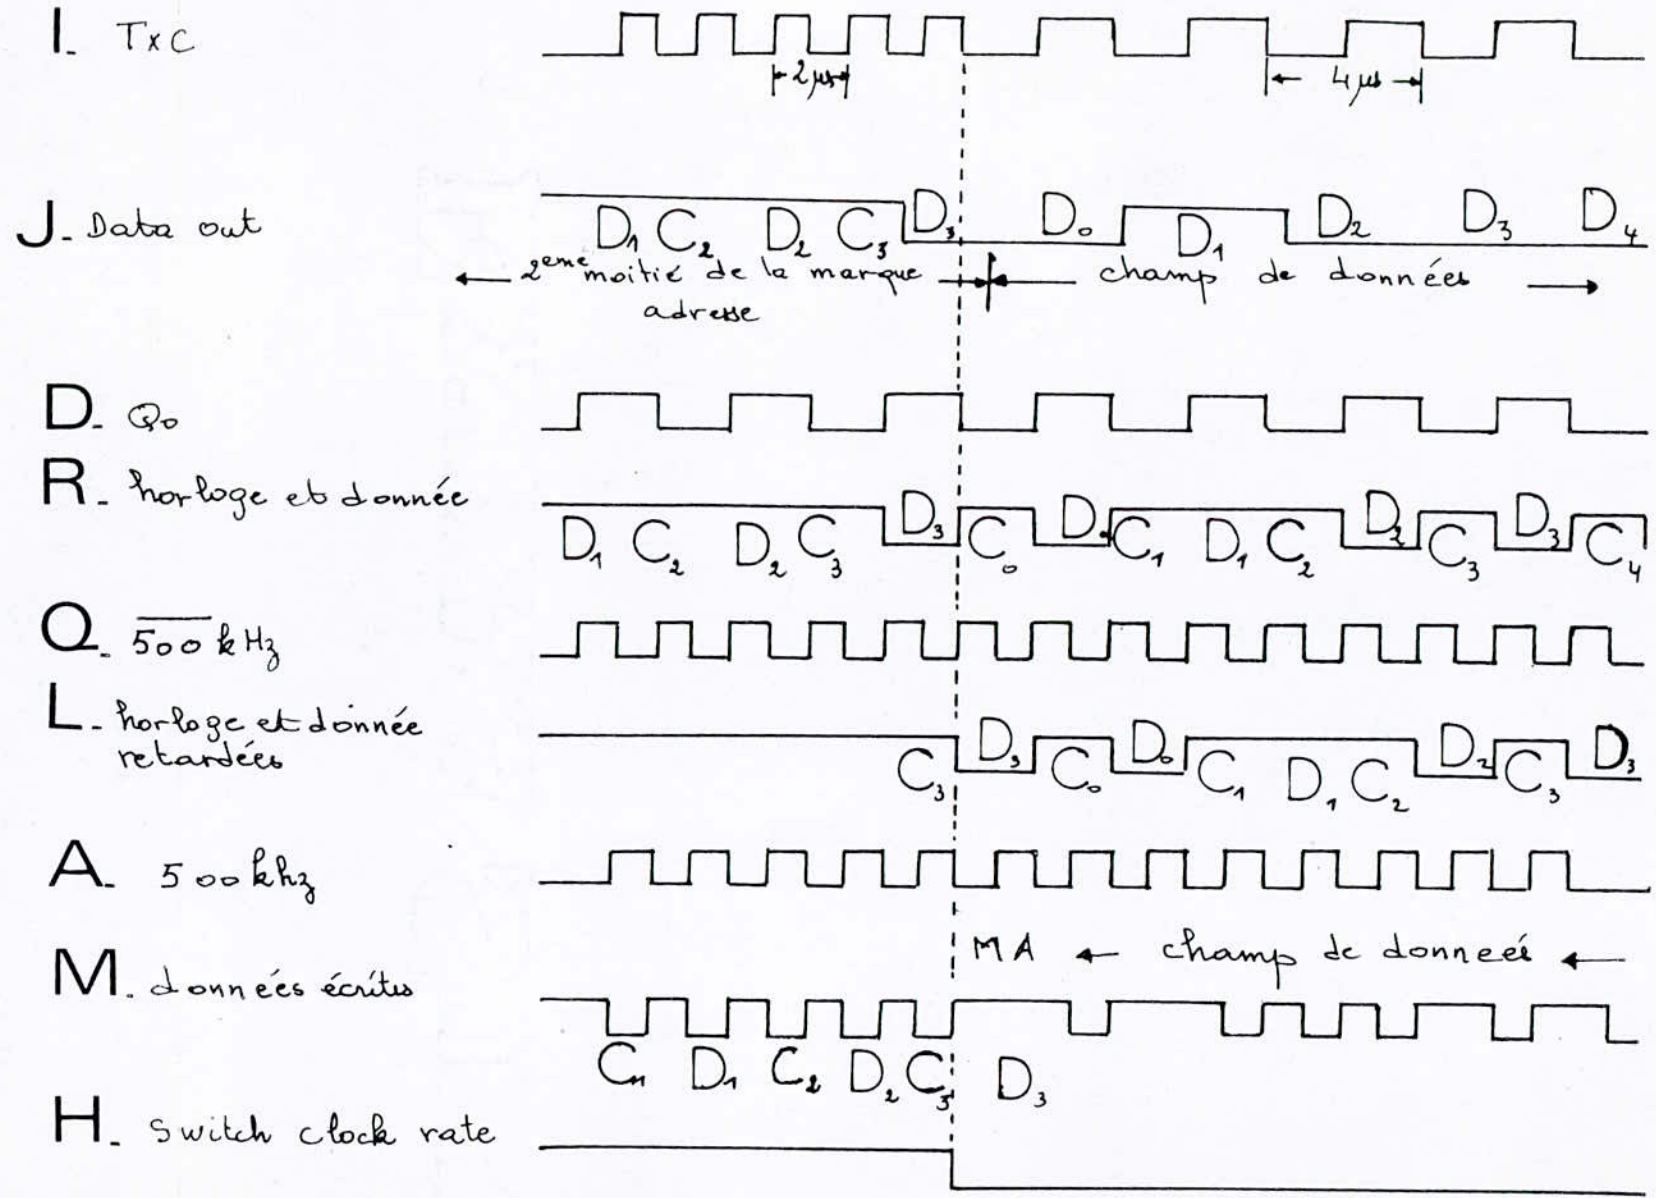 I. TxC
2 µs
4 µs
J. Data out
D1 C2 D2 C3 D3 D0 D1 D2 D3 D4
2eme moitié de la marque adresse
champ de données
D. Q0
R. horloge et donnée
D1 C2 D2 C3 D3 C0 D0 C1 D1 C2 D2 C3 D3 C4
Q. 500 kHz
L. horloge et donnée
retardées
C3 D3 C0 D0 C1 D1 C2 D2 C3 D3
A. 500 khz
MA ← champ de donneés ←
M. données écrites
C1 D1 C2 D2 C3 D3
H. Switch clock rate